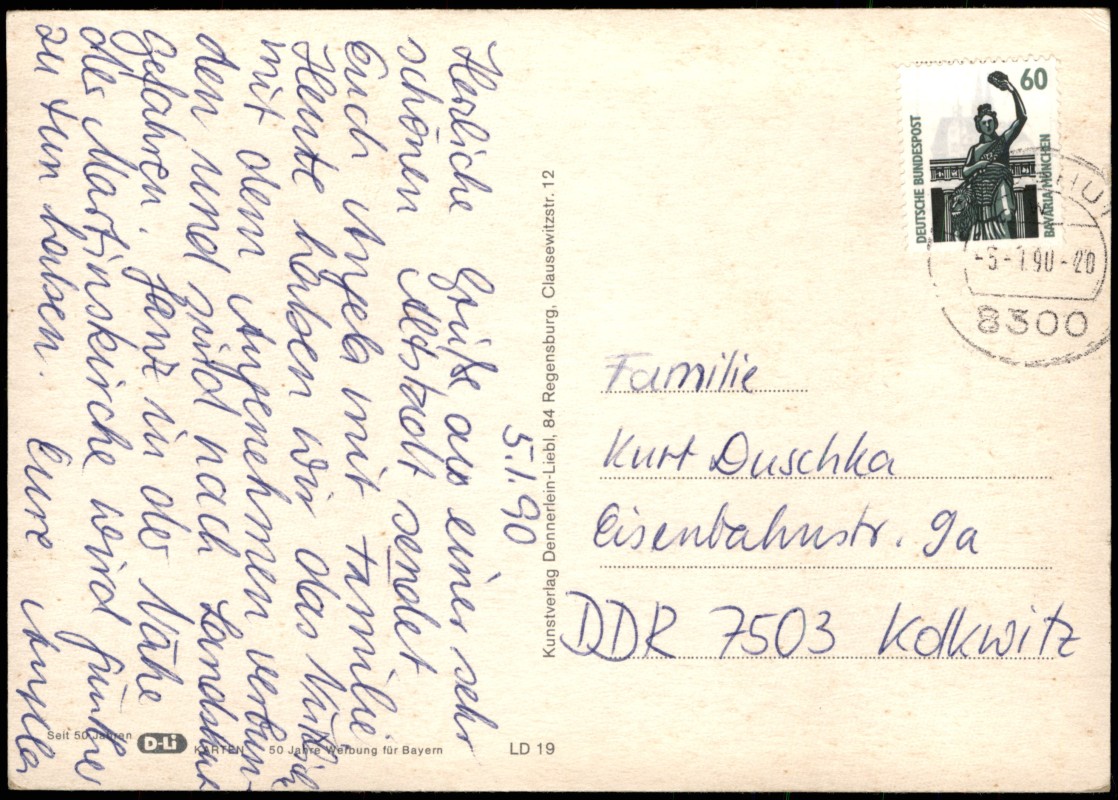 5.1.90
Herzliche Grüße aus einer sehr
schönen Altstadt sendet
Euch Angela mit Familie.
Heute haben wir das Nützliche
mit dem Angenehmen verbun-
den und sind nach Landshut
gefahren. Ganz in der Nähe
der Martinskirche wird Günther
zu tun haben. Eure Angela
Kunstverlag Dennerlein-Liebl, 84 Regensburg, Clausewitzstr. 12
Seit 50 Jahren
D-Li
KARTEN 50 Jahre Werbung für Bayern
LD 19
60
DEUTSCHE BUNDESPOST
BAVARIA MÜNCHEN
-5.-1.90-20
8300
Familie
Kurt Duschka
Eisenbahnstr. 9a
DDR 7503 Kolkwitz